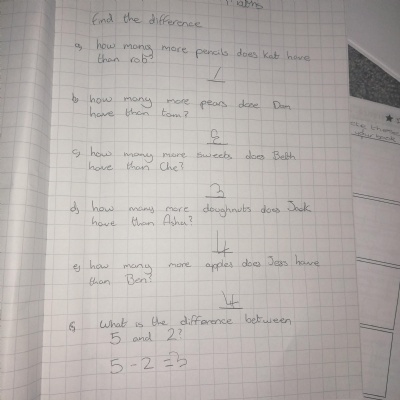 Maths
find the difference
a) how many more pencils does kat have
than rob?
1
b) how many more pears dose Dan
have than tom?
c) how many more sweets does Beth
have than Che?
3
d) how many more doughnuts does Jack
have than Asha?
4
e) how many more apples does Jess have
than Ben?
4
What is the difference between
5 and 2?
5 - 2 = 3